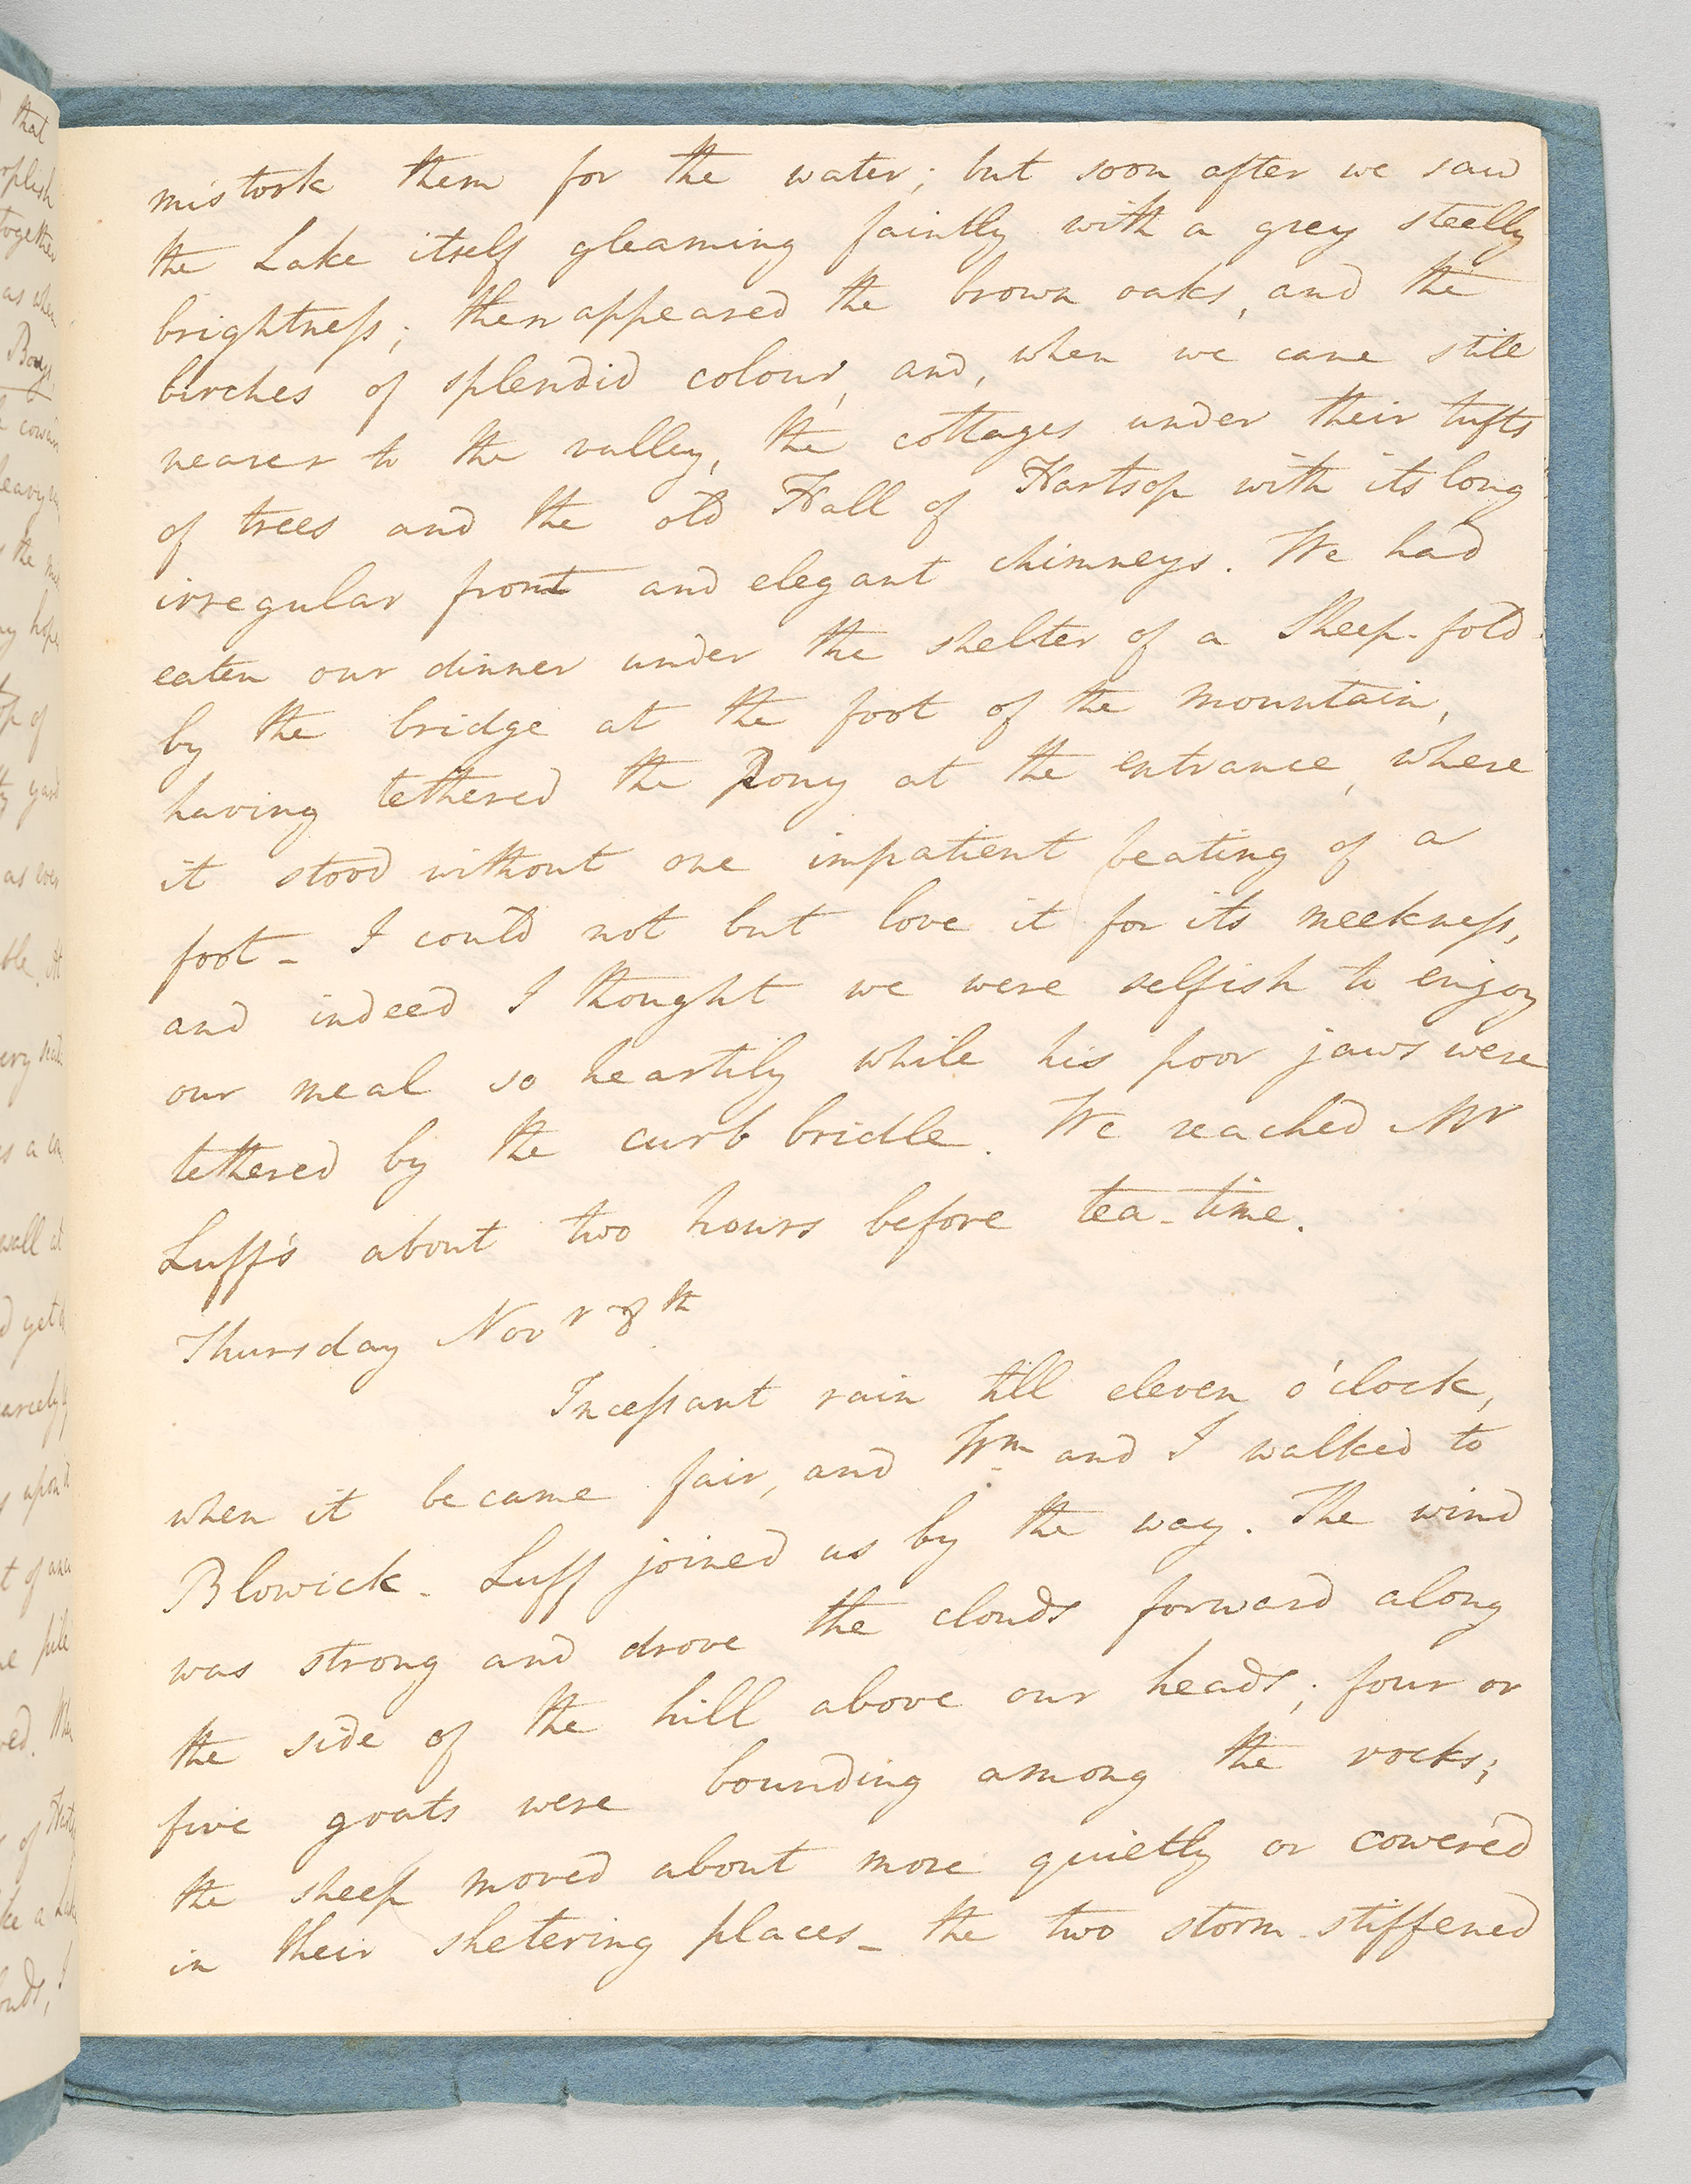 that
together
as when
hope
of
yard
as ever
wall at
get
upon
of
mistook them for the water; but soon after we saw
the Lake itself gleaming faintly with a grey steelly
brightneſs; then appeared the brown oaks, and the
birches of splendid colour, and, when we came still
nearer to the valley, the cottages under their tufts
of trees and the old Hall of Hartsop with its long
irregular front and elegant chimneys. We had
eaten our dinner under the shelter of a Sheep-fold
by the bridge at the foot of the mountain,
having tethered the Pony at the entrance, where
it stood without one impatient beating of a
foot – I could not but love it for its meekneſs,
and indeed I thought we were selfish to enjoy
our meal so heartily while his poor jaws were
tethered by the curb bridle. We reached Mr
Luff's about two hours before tea-time.
Thursday Novr 8th
Inceſsant rain till eleven o'clock,
when it became fair, and Wm and I walked to
Blowick – Luff joined us by the way. The wind
was strong and drove the clouds forward along
the side of the hill above our heads; four or
five goats were bounding among the rocks;
the sheep moved about more quietly or cowered
in their shetering places – the two storm-stiffened